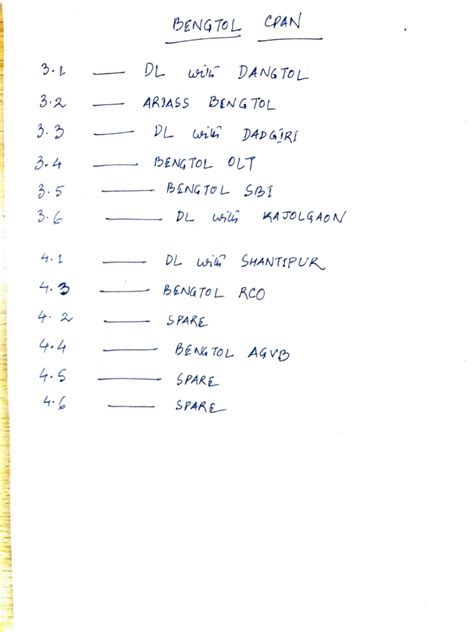 BENGTOL CPAN
3.1 — DL with DANGTOL
3.2 — ARIASS BENGTOL
3.3 — DL with DADGIRI
3.4 — BENGTOL OLT
3.5 — BENGTOL SBI
3.6 — DL with KAJOLGAON
4.1 — DL with SHANTIPUR
4.3 — BENGTOL RCO
4.2 — SPARE
4.4 — BENGTOL AGVB
4.5 — SPARE
4.6 — SPARE